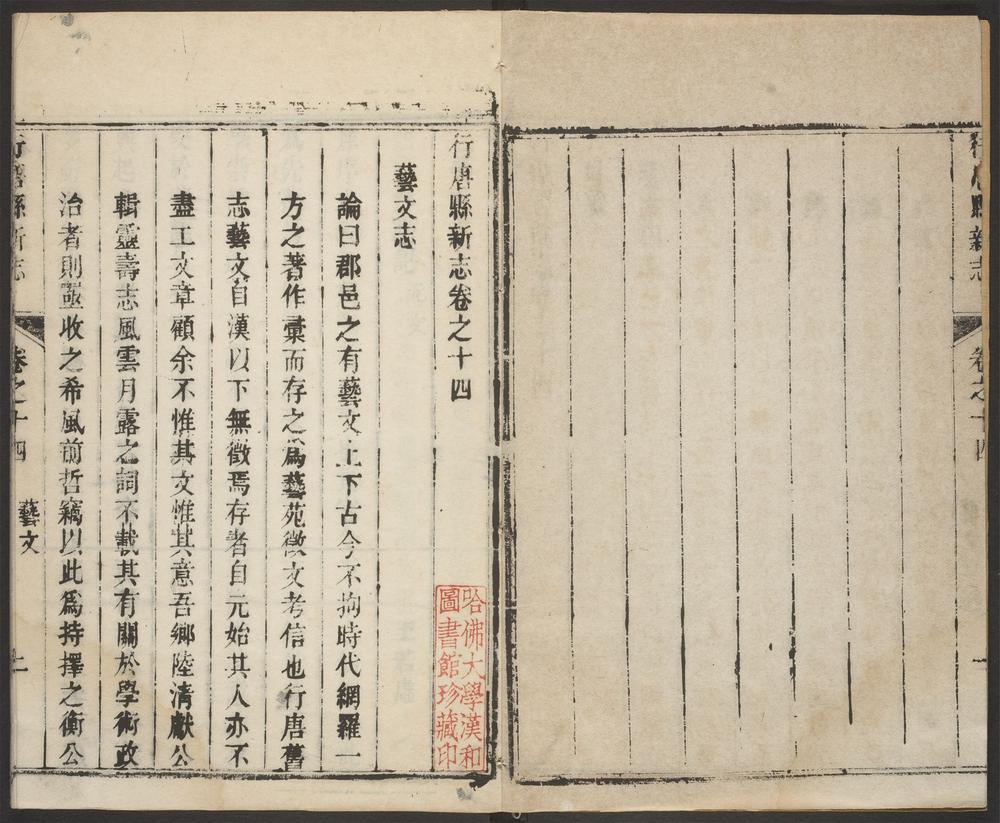 行唐縣新志
卷之十四
行唐縣新志卷之十四
藝文志
論曰郡邑之有藝文上下古今不拘時代網羅一
方之著作彚而存之爲藝苑徵文考信也行唐舊
志藝文自漢以下無徵焉存者自元始其人亦不
盡工文章顧余不惟其文惟其意吾鄉陸清獻公
輯靈壽志風雲月露之詞不載其有關於學術政
治者則亟收之希風前哲竊以此爲持擇之衡公
行唐縣新志
卷之十四
藝文
哈佛大學漢和
圖書館珍藏印